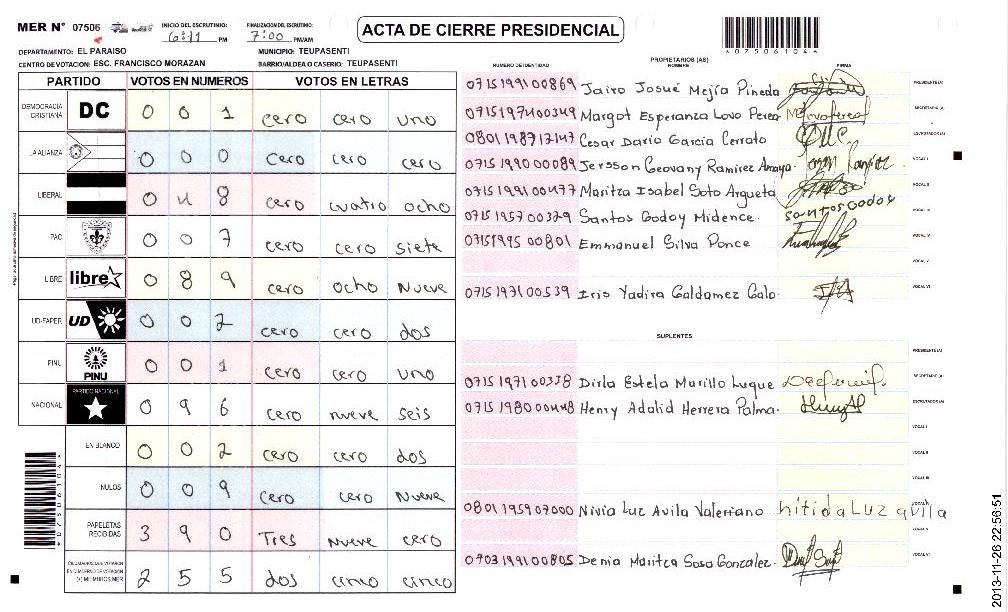 MER N° 07506
INICIO DEL ESCRUTINIO: 6:11 PM
FINALIZACION DEL ESCRUTINIO: 7:00 PM/AM
ACTA DE CIERRE PRESIDENCIAL
*07506104*
DEPARTAMENTO: EL PARAISO
MUNICIPIO: TEUPASENTI
CENTRO DE VOTACION: ESC. FRANCISCO MORAZAN
BARRIO/ALDEA O CASERIO: TEUPASENTI
PARTIDO VOTOS EN NUMEROS VOTOS EN LETRAS
DEMOCRACIA CRISTIANA DC 0 0 1 cero cero uno
LA ALIANZA 0 0 0 cero cero cero
LIBERAL 0 4 8 cero cuatro ocho
PAC 0 0 7 cero cero siete
LIBRE libre 0 8 9 cero ocho Nueve
UD-FAPER UD 0 0 2 cero cero dos
PINU PINU 0 0 1 cero cero uno
NACIONAL PARTIDO NACIONAL 0 9 6 cero nueve seis
EN BLANCO 0 0 2 cero cero dos
NULOS 0 0 9 cero cero Nueve
PAPELETAS RECIBIDAS 3 9 0 Tres Nueve cero
CIUDADANOS QUE VOTARON EN CUADERNO DE VOTACION (+) MIEMBROS MER 2 5 5 dos cinco cinco
*07506104*
PROPIETARIOS (AS)
NUMERO DE IDENTIDAD NOMBRE FIRMA
0715199100869 Jairo Josué Mejía Pineda PRESIDENTE(A)
0715197400349 Margot Esperanza Lovo Perea SECRETARIO (A)
0801198712147 Cesar Dario Garcia Cerrato ESCRUTADOR (A)
0715199000089 Jersson Geovany Ramirez Amaya. VOCAL I
0715199100477 Maritza Isabel Soto Argueta VOCAL II
0715195700329 Santos Godoy Midence. santos Godoy VOCAL III
0715199500801 Emmanuel Silva Ponce VOCAL IV
VOCAL V
0715197100539 Iris Yadira Galdamez Galo. VOCAL VI
SUPLENTES
PRESIDENTE(A)
0715197100338 Dirla Estela Murillo Luque SECRETARIO (A)
0715198000448 Henry Adalid Herrera Palma. ESCRUTADOR (A)
VOCAL I
VOCAL II
VOCAL III
0801195907000 Nivia Luz Avila Valeriano nitida LUZ avila VOCAL IV
VOCAL V
0703199100805 Denia Maritza Sosa Gonzalez. VOCAL VI
2013-11-26 22:56:51